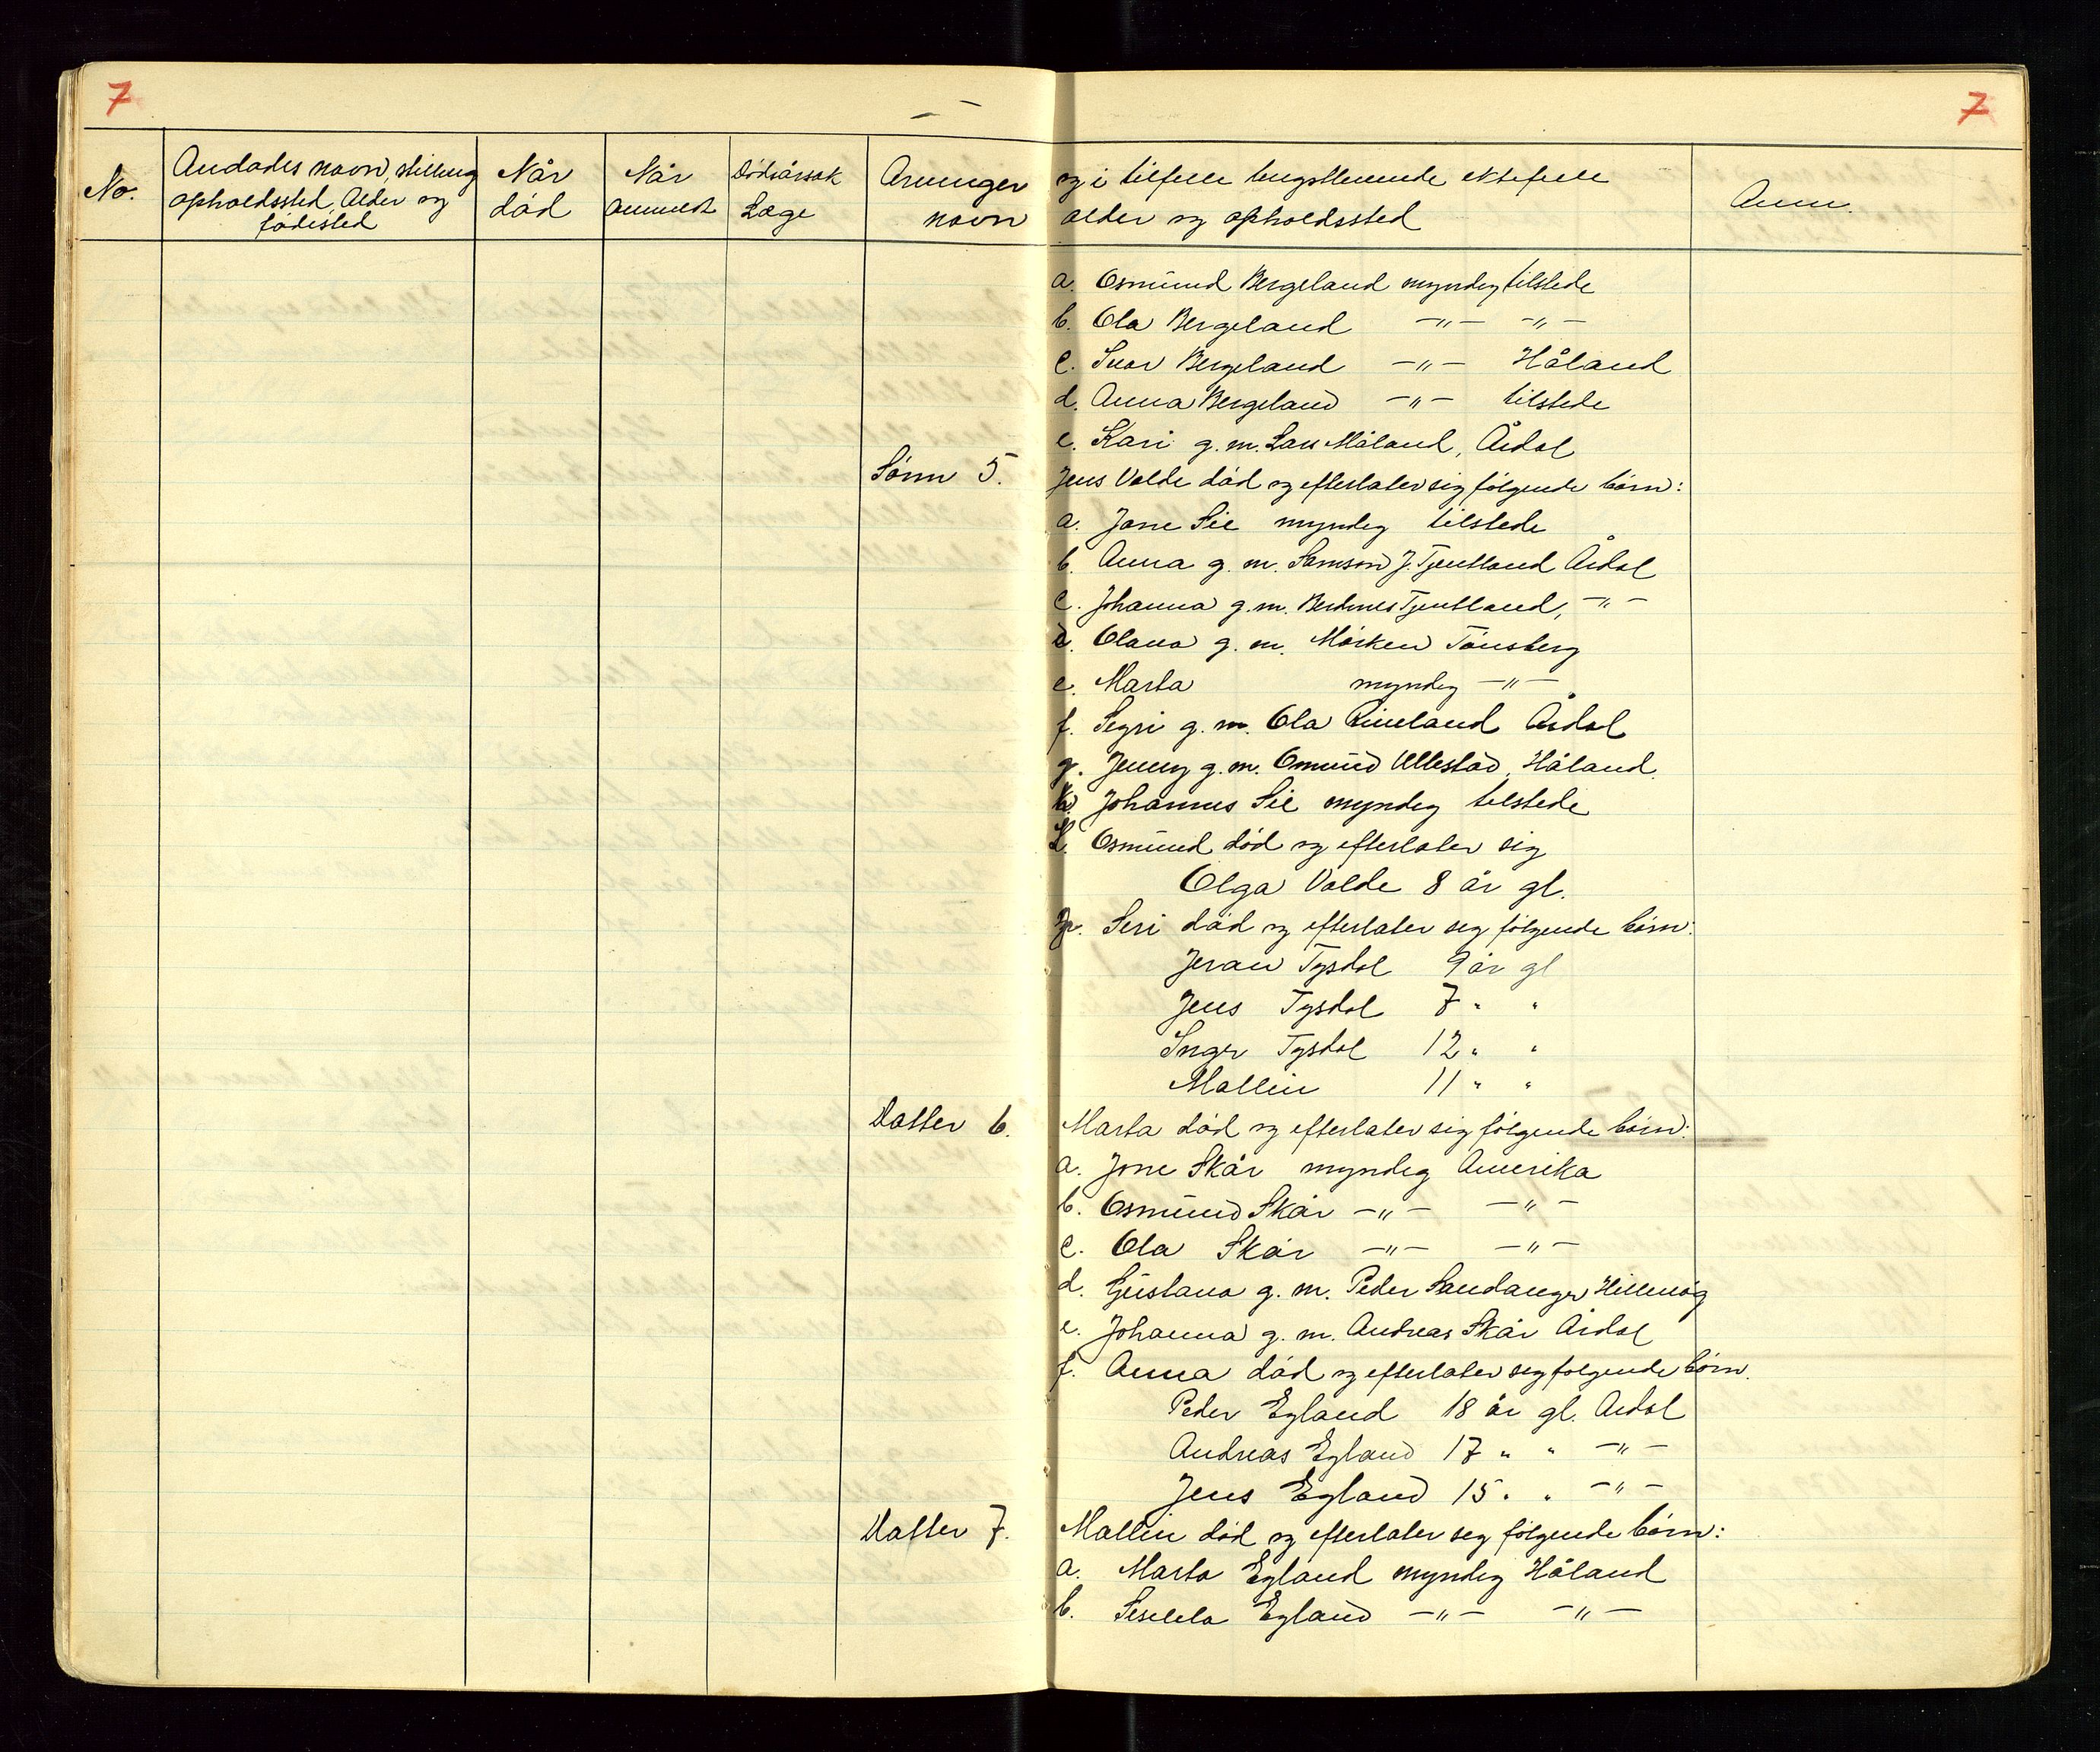 7
7
No.
Avdødes navn, stilling
opholdssted, Alder og
fødested
Når
død
Når
anmeldt
Dødsårsak
Læge
Arvinger
navn
og i tilfelle lengstlevende ektefelle
alder og opholdssted
Anm.
a. Osmund Bergeland myndig tilstede
b. Ola Bergeland —"— —"—
c. Ivar Bergeland —"— Håland
d. Anna Bergeland —"— tilstede
e. Kari g. m. Lars Måland, Årdal
Sønn 5. Jens Valde død og efterlater sig følgende børn:
a. Jone Sie myndig tilstede
b. Anna g. m. Samson J. Tjentland Årdal
c. Johanna g. m. Tjentland, —"—
d. Olava g. m. Mørken Tønsberg
e. Marta myndig —"—
f. Segri g. m. Ola Årdal
g. Jenny g. m. Omund Ullestad, Håland.
Johannes Sie myndig tilstede
Osmund død og efterlater sig
Olga Valde 8 år gl.
Seri død og efterlater seg følgende børn:
Tysdal 9 år gl
Jens Tysdal 7 " "
Inger Tysdal 12 " "
Mallin 11 " "
Datter 6. Marta død og efterlater sig følgende børn:
a. Jone Skår myndig Amerika
b. Osmund Skår —"— —"—
c. Ola Skår —"— —"—
d. Gustava g. m. Peder Sandanger Hillevåg
e. Johanna g. m. Andreas Skår Årdal
f. Anna død og efterlater seg følgende børn.
Peder Egland 18 år gl. Årdal
Andreas Egland 17 " " —"—
Jens Egland 15 " " —"—
Datter 7. Mallin død og efterlater seg følgende børn:
a. Marta Egland myndig Håland
b. Egland —"— —"—